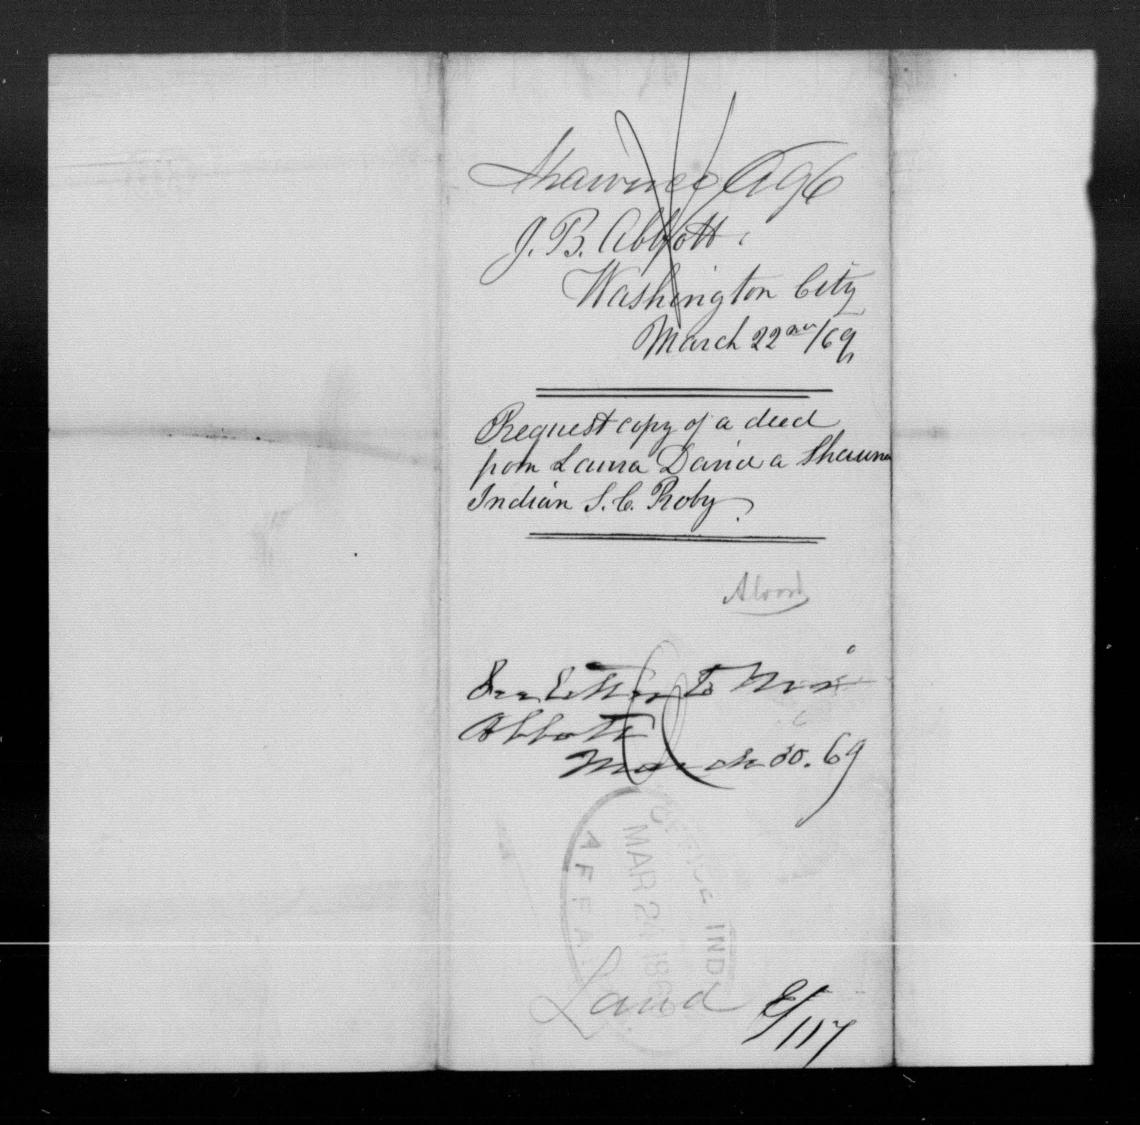 Shawnee A96
J. B. Abbott,
Washington City
March 22nd/69,
Request copy of a deed
from Laura David a Shawnee
Indian S. C. Roby.
See Letter to
Abbott
March 30. 69
OFFICE IND
AFFAI
MAR 24 1869
Land
E/117